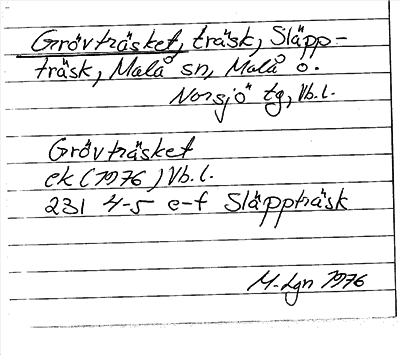 Grövträsket, träsk, Släpp-
träsk, Malå sn, Malå o.
Norsjö tg, Vb.l.
Grövträsket
ek (1976) Vb.l.
231 4-5 e-f Släppträsk
M-Lgn 1976